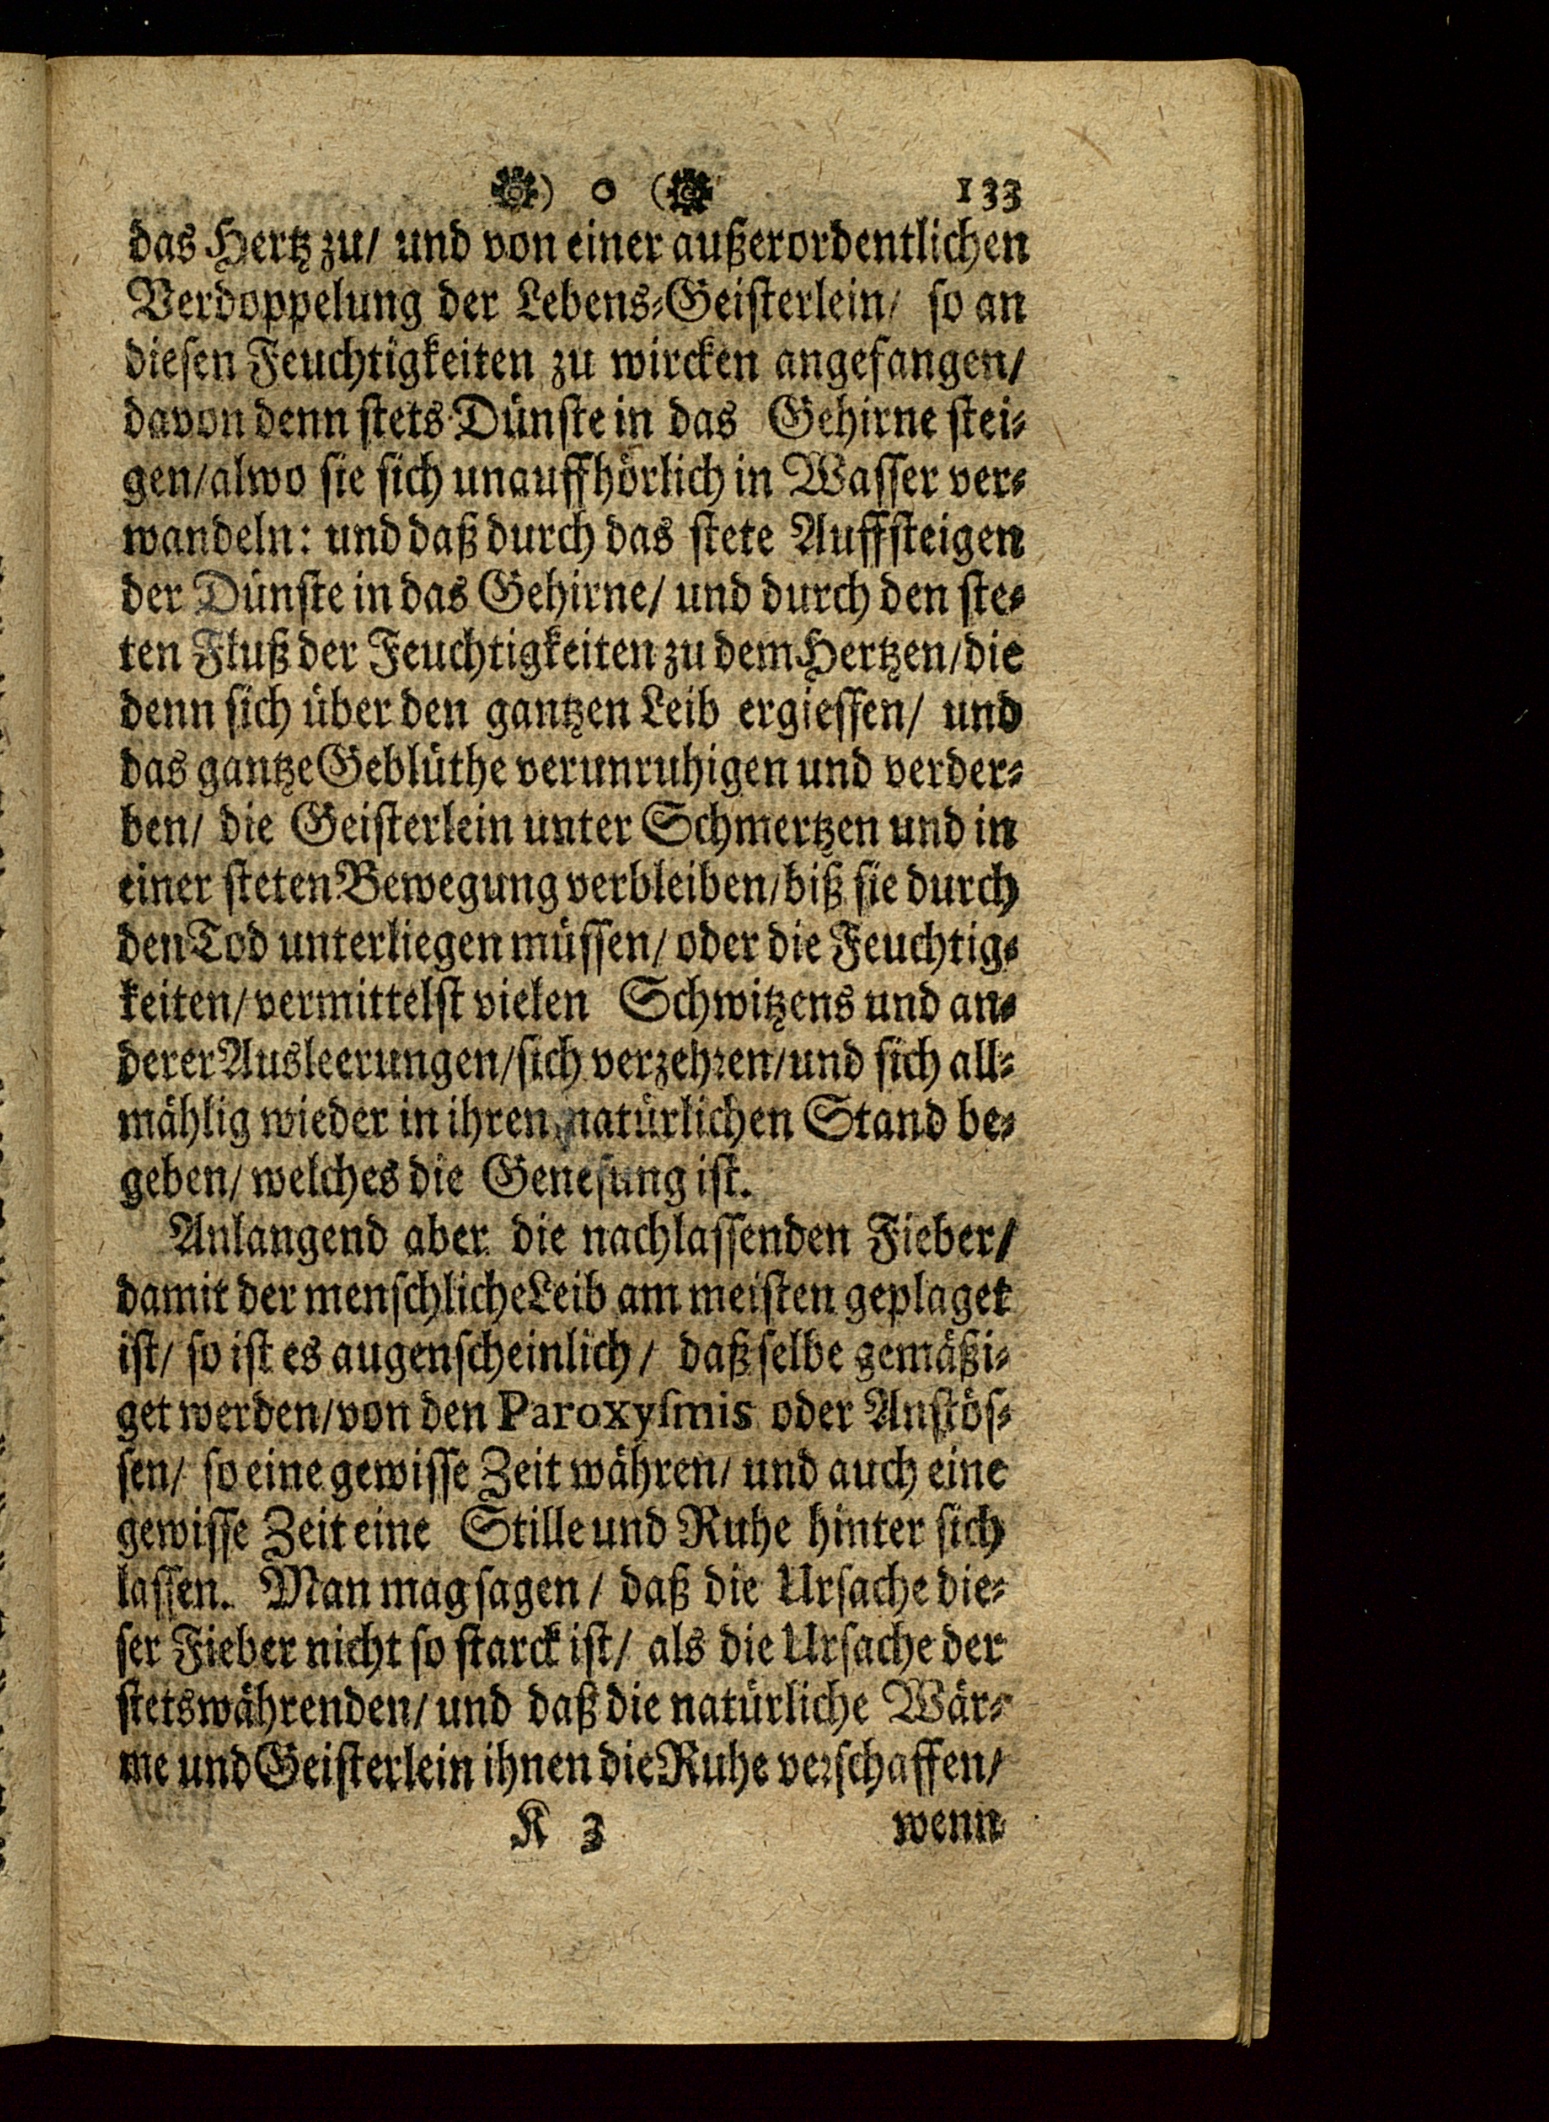 ) o ( 133
das Hertz zu/ und von einer außerordentlichen
Verdoppelung der Lebens-Geisterlein/ so an
diesen Feuchtigkeiten zu wircken angefangen/
davon denn stets Dünste in das Gehirne stei-
gen/alwo sie sich unauffhörlich in Wasser ver-
wandeln: und daß durch das stete Auffsteigen
der Dünste in das Gehirne/ und durch den ste-
ten Fluß der Feuchtigkeiten zu dem Hertzen/die
denn sich über den gantzen Leib ergiessen/ und
das gantze Geblüthe verunruhigen und verder-
ben/ die Geisterlein unter Schmertzen und in
einer steten Bewegung verbleiben/biß sie durch
den Tod unterliegen müssen/ oder die Feuchtig-
keiten/ vermittelst vielen Schwitzens und an-
derer Ausleerungen/sich verzehren/und sich all-
mählig wieder in ihren natürlichen Stand be-
geben/ welches die Genesung ist.
Anlangend aber die nachlassenden Fieber/
damit der menschliche Leib am meisten geplaget
ist/ so ist es augenscheinlich/ daß selbe gemäßi-
get werden/von den Paroxysmis oder Anstös-
sen/ so eine gewisse Zeit währen/ und auch eine
gewisse Zeit eine Stille und Ruhe hinter sich
lassen. Man mag sagen/ daß die Ursache die-
ser Fieber nicht so starck ist/ als die Ursache der
stetswährenden/ und daß die natürliche Wär-
me und Geisterlein ihnen die Ruhe verschaffen/
K 3 wenn